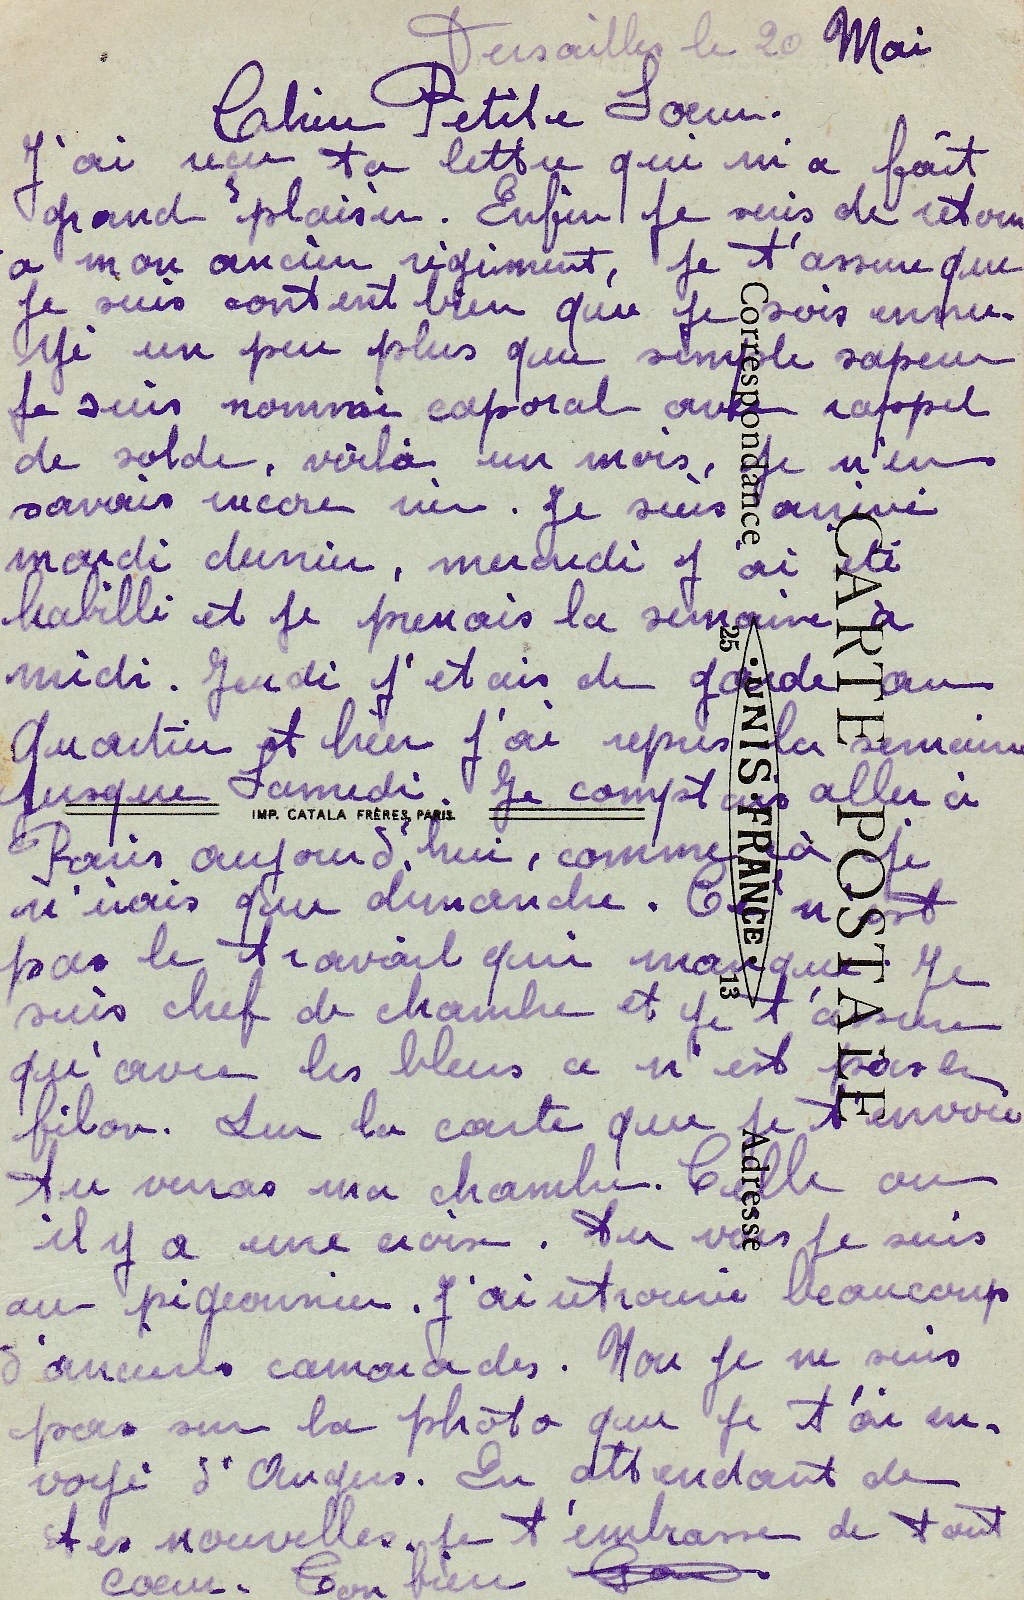 Versailles le 20 Mai
Chère Petite Sœur.
J'ai reçu ta lettre qui m'a fait
grand plaisir. Enfin je suis de retour
a mon ancien régiment, je t'assure que
je suis content bien que je sois ennu-
yé un peu plus que simple sapeur
je suis nommé caporal avec rappel
de solde, voilà un mois, je n'en
savais encore rien. Je suis arrivé
mardi dernier, mercredi j'ai été
habillé et je prenais la semaine à
midi. Jeudi j'etais de garde au
Quartier et hier j'ai repris la semaine
jusque Samedi. Je comptais aller à
Paris aujourd'hui, comme je
n'irais que dimanche. Ce n'est
pas le travail qui manque. Je
suis chef de chambre et je t'assure
qu'avec les bleus ce n'est pas le
filon. Sur la carte que je t'envoie
tu verras ma chambre. Celle ou
il y a une croix. Tu vois je suis
au pigeonnier. J'ai retrouvé beaucoup
d'anciens camarades. Non je ne suis
pas sur la photo que je t'ai en-
voyé d'Angers. En attendant de
tes nouvelles. je t'embrasse de tout
cœur. Ton bien
Correspondance
CARTE POSTALE
Adresse
25 · UNIS-FRANCE · 13
IMP. CATALA FRÈRES, PARIS.